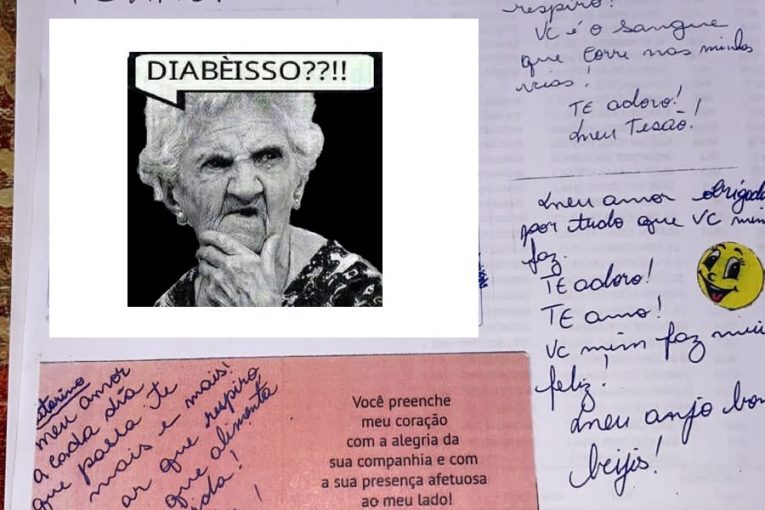 DIABÈISSO??!!
respiro!
VC é o sangue
que corre nas minhas
veias!
TE adoro!
meu Tesão!
meu amor obrigada
por tudo que VC mim
faz.
TE adoro!
TE amo!
VC mim faz
feliz!
meu anjo
beijis!
meu amor
a cada dia
que passa te
mais e mais!
ar que respiro
que alimenta
!
Você preenche
meu coração
com a alegria da
sua companhia e com
a sua presença afetuosa
ao meu lado!